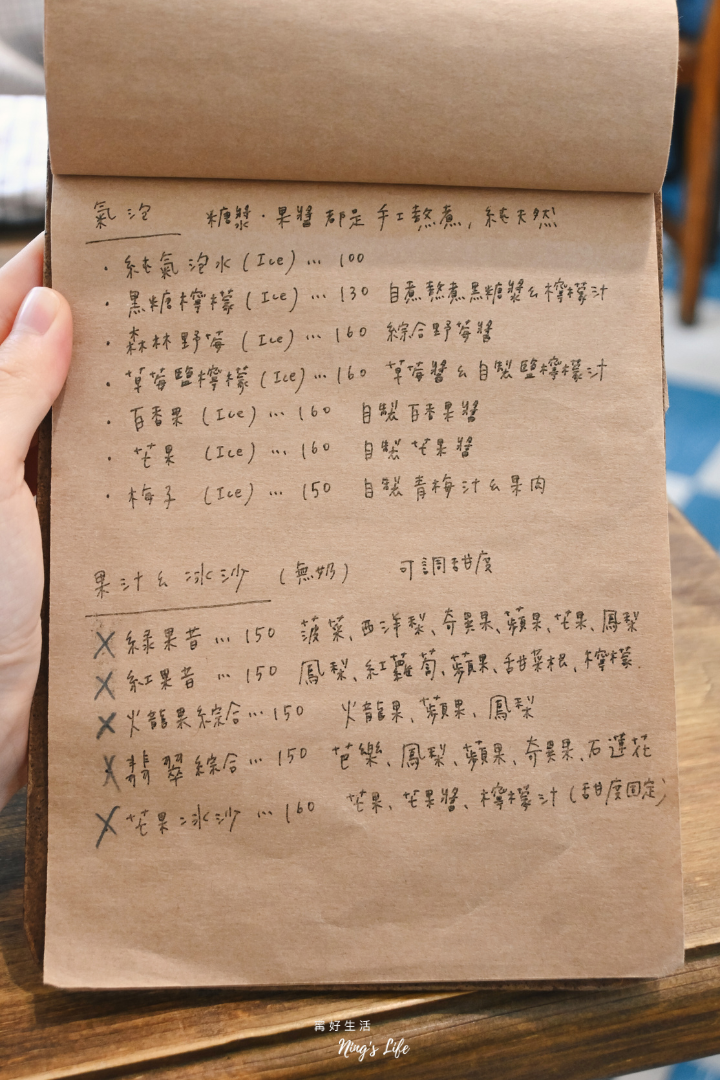 氣泡 糖漿·果醬都是手工熬煮, 純天然
· 純氣泡水 (Ice) … 100
· 黑糖檸檬 (Ice) … 130 自煮熬煮黑糖漿&檸檬汁
· 森林野莓 (Ice) … 160 綜合野莓醬
· 草莓鹽檸檬 (Ice) … 160 草莓醬&自製鹽檸檬汁
· 百香果 (Ice) … 160 自製百香果醬
· 芒果 (Ice) … 160 自製芒果醬
· 梅子 (Ice) … 150 自製青梅汁&果肉
果汁&冰沙 (無奶) 可調甜度
X 綠果昔 … 150 菠菜、西洋梨、奇異果、蘋果、芒果、鳳梨
X 紅果昔 … 150 鳳梨、紅蘿蔔、蘋果、甜菜根、檸檬
X 火龍果綜合 … 150 火龍果、蘋果、鳳梨
X 翡翠綜合 … 150 芭樂、鳳梨、蘋果、奇異果、石蓮花
X 芒果冰沙 … 160 芒果、芒果醬、檸檬汁 (甜度固定)
甯好生活
Ning's Life